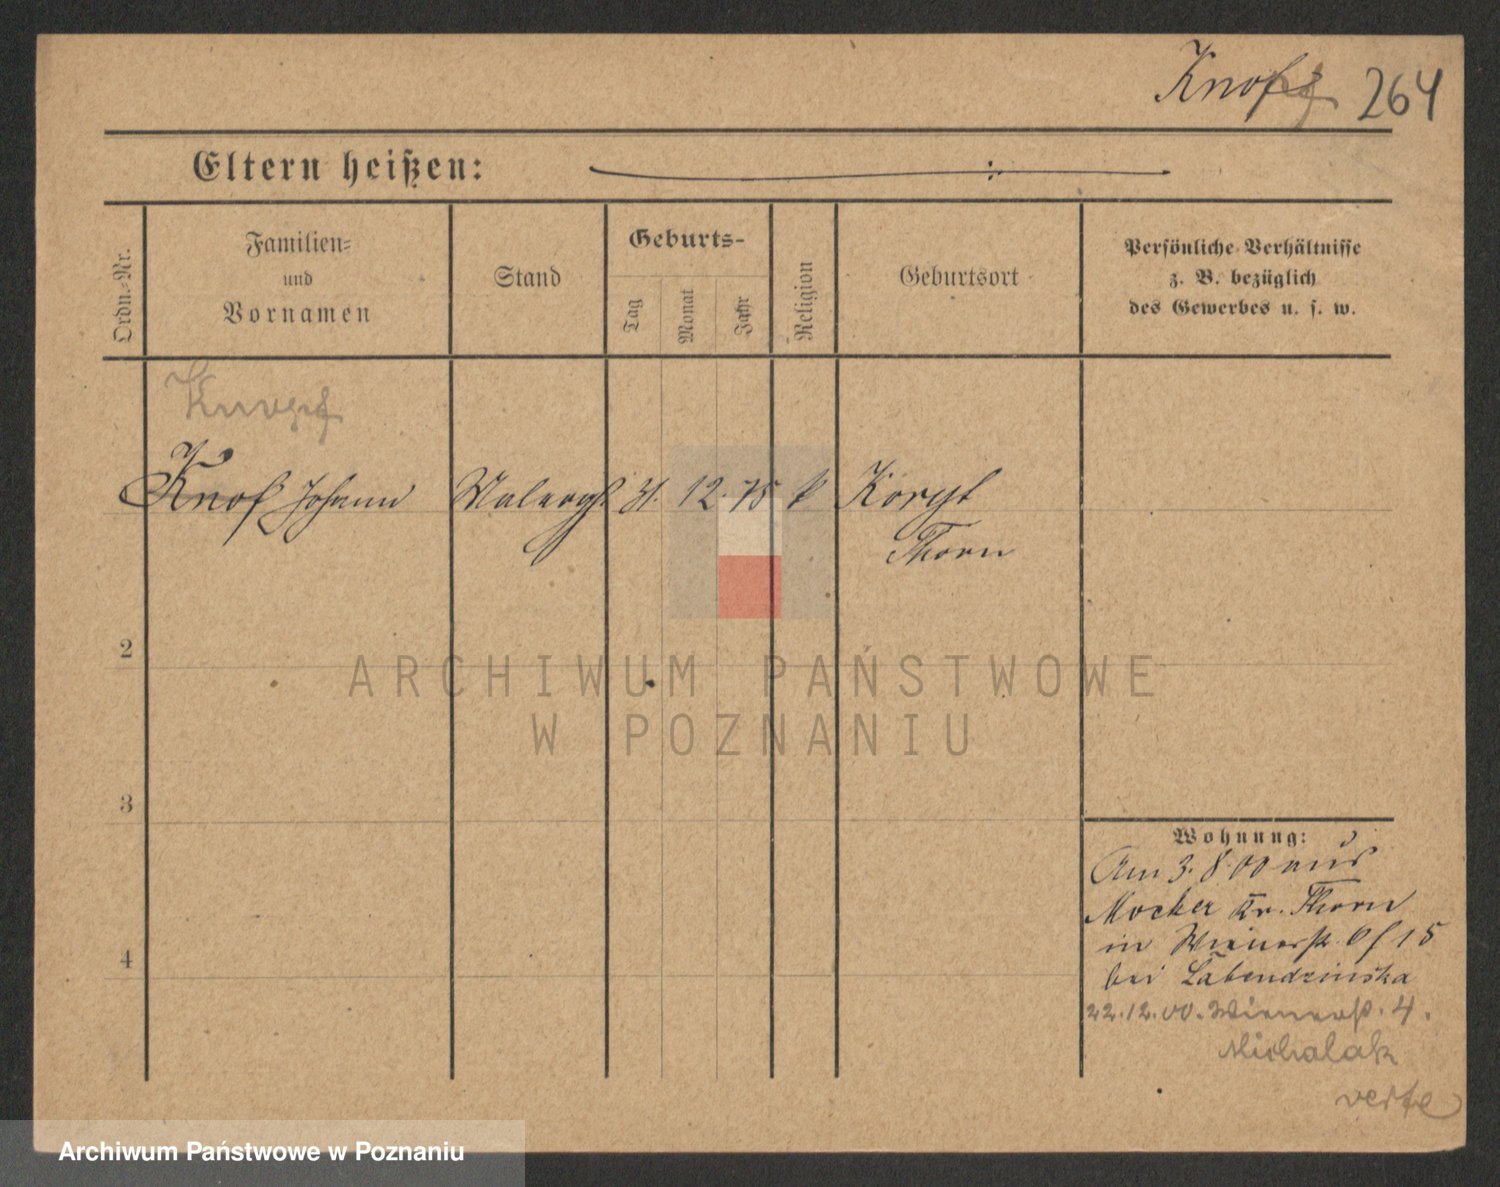 Knof 264
Eltern heißen:
Ordn.-Nr.
Familien-
und
Vornamen
Stand
Geburts-
Tag
Monat
Jahr
Religion
Geburtsort
Persönliche Verhältnisse
z. B. bezüglich
des Gewerbes u. s. w.
Knopf
Knof Johann
Malergh 31. 12. 75 k
Thorn
2
3
4
Wohnung:
Am 3. 8. 00 aus
Mocker Kr. Thorn
in Wienerstr. 15
bei Labendzinska
22.12.00. Wienerstr. 4.
Michalak
verte
ARCHIWUM PAŃSTWOWE
W POZNANIU
Archiwum Państwowe w Poznaniu